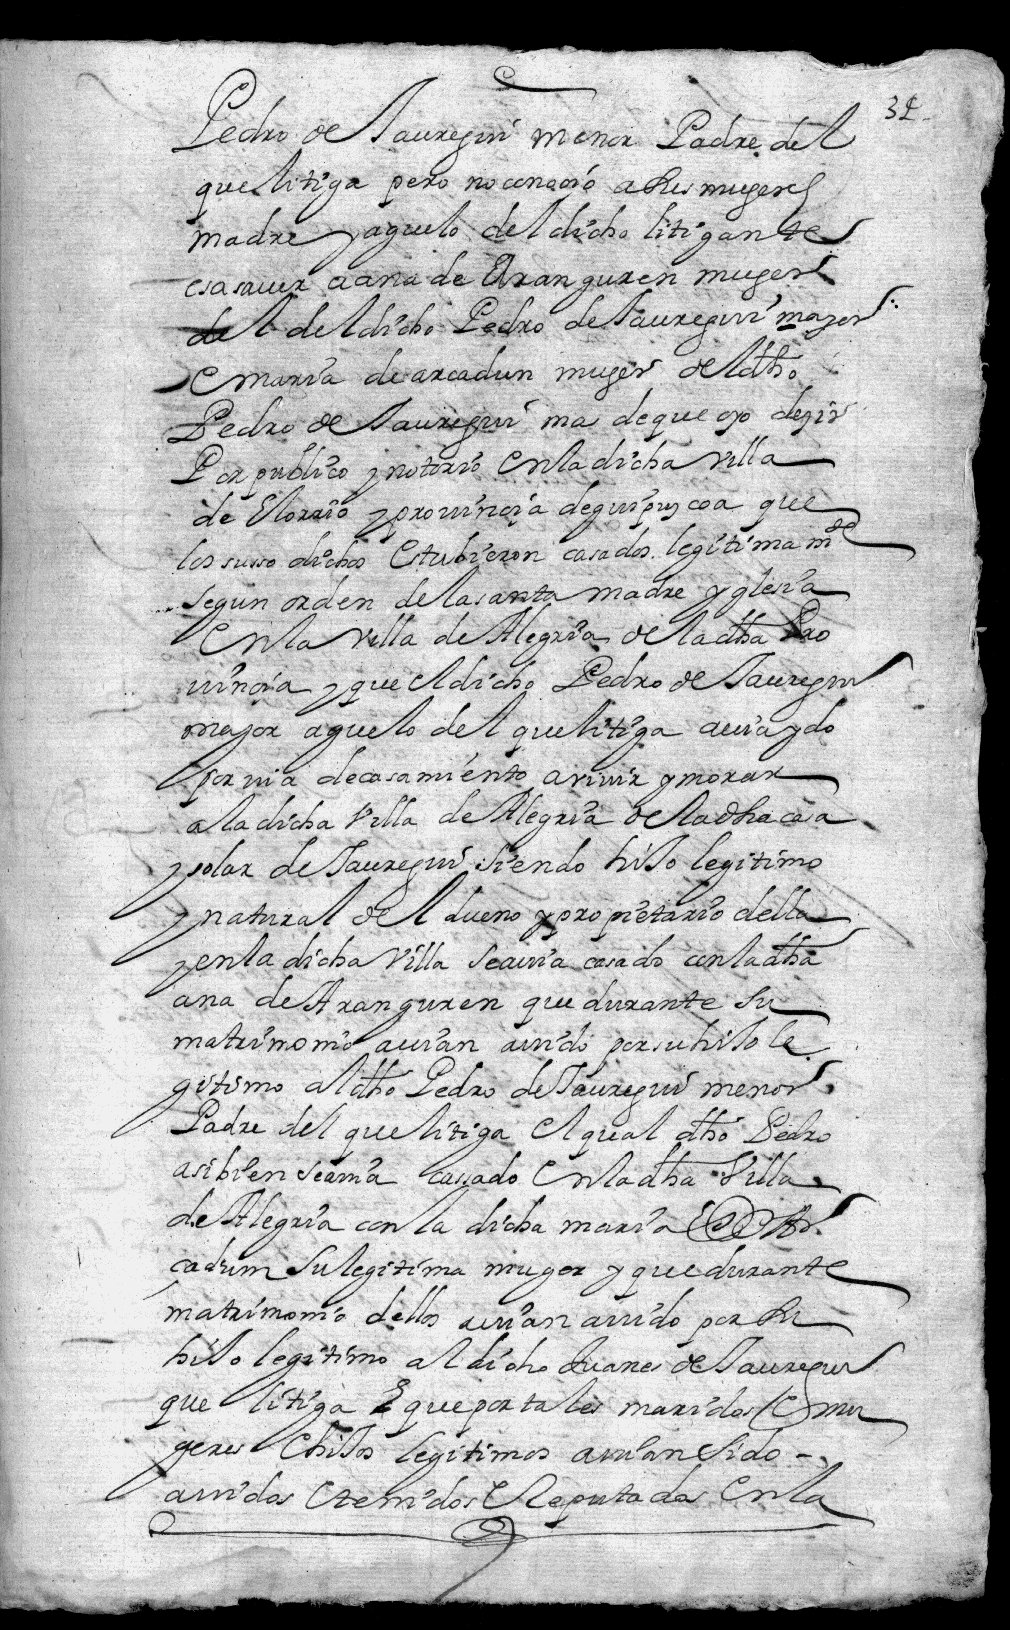 32
Pedro de Jauregui menor Padre del
que litiga pero no conoçio a sus mugeres
madre y aguelo del dicho litigante
es a sauer a ana de Aranguren muger
del dicho Pedro de Jauregui mayor
e maria de arcadun muger del dho
Pedro de Jauregui mas de que oyo dezir
Por publico y notorio en la dicha villa
de Elorrio y prouinçia de guipuzcoa que
los susso dichos estubieron casados legitimamte
segun orden de la santa madre yglesia
en la villa de Alegria de la dha Pro
uinçia y que el dicho Pedro de Jauregui
mayor aguelo del que litiga auia ydo
por via de casamiento a viuir y morar
a la dicha Villa de Alegria de la dha casa
y solar de Jauregui siendo hijo legitimo
y natural del dueno y propietario della
y en la dicha Villa se auia casado con la dha
ana de Aranguren que durante su
matrimonio auian auido por su hijo le
gitimo al dho Pedro de Jauregui menor
Padre del que litiga el qual dho Pedro
asi bien se auia cassado en la dha Villa
de Alegria con la dicha maria de Ar
cadum su legitima muger y que durante
matrimonio dellos auian auido por su
hijo legitimo al dicho Juanes de Jauregui
que litiga e que por tales maridos e mu
geres e hijos legitimos auian sido
auidos e tenidos e Reputados en la